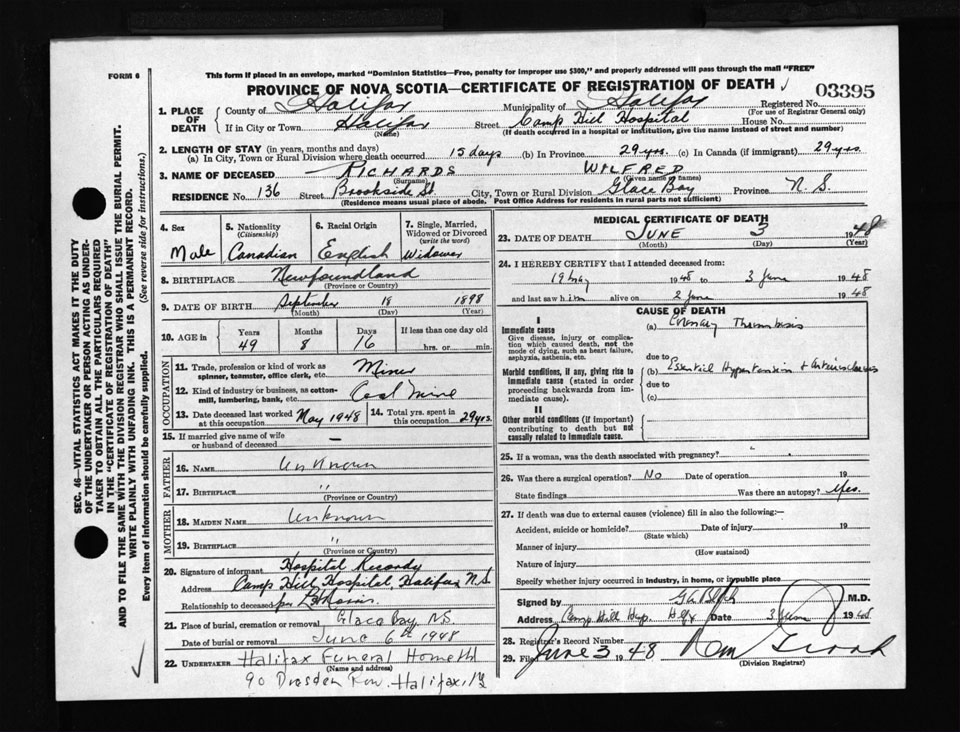 FORM 6
This form if placed in an envelope, marked "Dominion Statistics—Free, penalty for improper use $300," and properly addressed will pass through the mail "FREE"
PROVINCE OF NOVA SCOTIA—CERTIFICATE OF REGISTRATION OF DEATH
03395
1. PLACE OF DEATH
County of Halifax Municipality of Halifax Registered No.
(For use of Registrar General only)
If in City or Town Halifax Street Camp Hill Hospital House No.
(Name) (If death occurred in a hospital or institution, give the name instead of street and number)
2. LENGTH OF STAY (in years, months and days)
(a) In City, Town or Rural Division where death occurred 15 days (b) In Province 29 yrs. (c) In Canada (if immigrant) 29 yrs
3. NAME OF DECEASED RICHARDS WILFRED
(Surname) (Given name or names)
RESIDENCE No. 136 Street Brookside St. City, Town or Rural Division Glace Bay Province N. S.
(Residence means usual place of abode. Post Office Address for residents in rural parts not sufficient)
4. Sex
Male
5. Nationality
(Citizenship)
Canadian
6. Racial Origin
English
7. Single, Married, Widowed or Divorced
(write the word)
Widower
8. BIRTHPLACE Newfoundland
(Province or Country)
9. DATE OF BIRTH September 18 1898
(Month) (Day) (Year)
10. AGE in
Years Months Days If less than one day old
49 8 16 hrs. or min.
OCCUPATION
11. Trade, profession or kind of work as spinner, teamster, office clerk, etc. Miner
12. Kind of industry or business, as cotton-mill, lumbering, bank, etc. Coal Mine
13. Date deceased last worked at this occupation May 1948
14. Total yrs. spent in this occupation 29 yrs.
15. If married give name of wife or husband of deceased —
FATHER
16. NAME Unknown
17. BIRTHPLACE "
(Province or Country)
MOTHER
18. MAIDEN NAME Unknown
19. BIRTHPLACE "
(Province or Country)
20. Signature of informant Hospital Records
Address Camp Hill Hospital, Halifax N.S.
Relationship to deceased per
21. Place of burial, cremation or removal Glace Bay, N.S.
Date of burial or removal June 6th 1948
22. UNDERTAKER Halifax Funeral Home Ltd
(Name and address)
90 Dresden Row. Halifax, N.S
MEDICAL CERTIFICATE OF DEATH
23. DATE OF DEATH JUNE 3 1948
(Month) (Day) (Year)
24. I HEREBY CERTIFY that I attended deceased from:
19 May 1948 to 3 June 1948
and last saw him alive on 2 June 1948
CAUSE OF DEATH
I
Immediate cause
Give disease, injury or complication which caused death, not the mode of dying, such as heart failure, asphyxia, asthenia, etc.
(a) Coronary Thrombosis
due to
Morbid conditions, if any, giving rise to immediate cause (stated in order proceeding backwards from immediate cause).
(b) Essential Hypertension + Arteriosclerosis
due to
(c)
II
Other morbid conditions (if important) contributing to death but not causally related to immediate cause.
25. If a woman, was the death associated with pregnancy?
26. Was there a surgical operation? No Date of operation 19
State findings Was there an autopsy? Yes.
27. If death was due to external causes (violence) fill in also the following:—
Accident, suicide or homicide? Date of injury 19
(State which)
Manner of injury
(How sustained)
Nature of injury
Specify whether injury occurred in industry, in home, or in public place
Signed by M.D.
Address Camp Hill Hosp. Hlfx Date 3 June 1948
28. Registrar's Record Number
29. Filed June 3 1948
(Division Registrar)
SEC. 46—VITAL STATISTICS ACT MAKES IT THE DUTY OF THE UNDERTAKER OR PERSON ACTING AS UNDERTAKER TO OBTAIN ALL THE PARTICULARS REQUIRED IN THE "CERTIFICATE OF REGISTRATION OF DEATH" AND TO FILE THE SAME WITH THE DIVISION REGISTRAR WHO SHALL ISSUE THE BURIAL PERMIT.
WRITE PLAINLY WITH UNFADING INK. THIS IS A PERMANENT RECORD.
Every item of information should be carefully supplied. (See reverse side for instructions.)